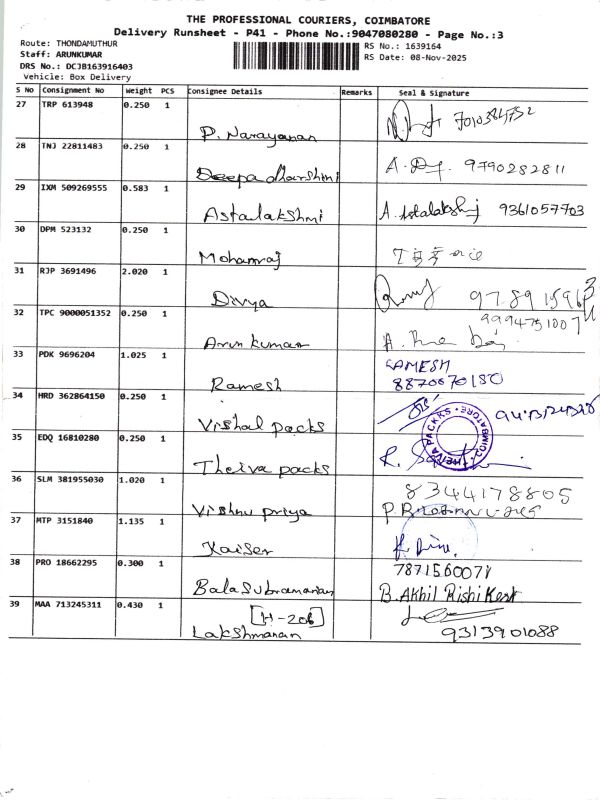 THE PROFESSIONAL COURIERS, COIMBATORE
Delivery Runsheet - P41 - Phone No.:9047080280 - Page No.:3
Route: THONDAMUTHUR
Staff: ARUNKUMAR
DRS No.: DCJB163916403
Vehicle: Box Delivery
RS No.: 1639164
RS Date: 08-Nov-2025
S No Consignment No Weight PCS Consignee Details Remarks Seal & Signature
27 TRP 613948 0.250 1
P. Narayanan
28 TNJ 22811483 0.250 1
Deepadharshmi A. 9790282811
29 IXM 509269555 0.583 1
Astalakshmi 9361057703
30 DPM 523132 0.250 1
Mohanraj
31 RJP 3691496 2.020 1
Divya
32 TPC 9000051352 0.250 1
Arun kumar
33 PDK 9696204 1.025 1 RAMESH
Ramesh 8870070180
34 HRD 362864150 0.250 1
Vishal packs
35 EDQ 16810280 0.250 1
Theiva packs
THEIVA PACKKS COIMBATORE
36 SLM 381955030 1.020 1 8344178805
Vishnu priya
37 MTP 3151840 1.135 1
Kaiser
38 PRO 18662295 0.300 1
Balasubramanian B. Akhil Rishi
39 MAA 713245311 0.430 1
[H-206]
Lakshmanan 9313901088